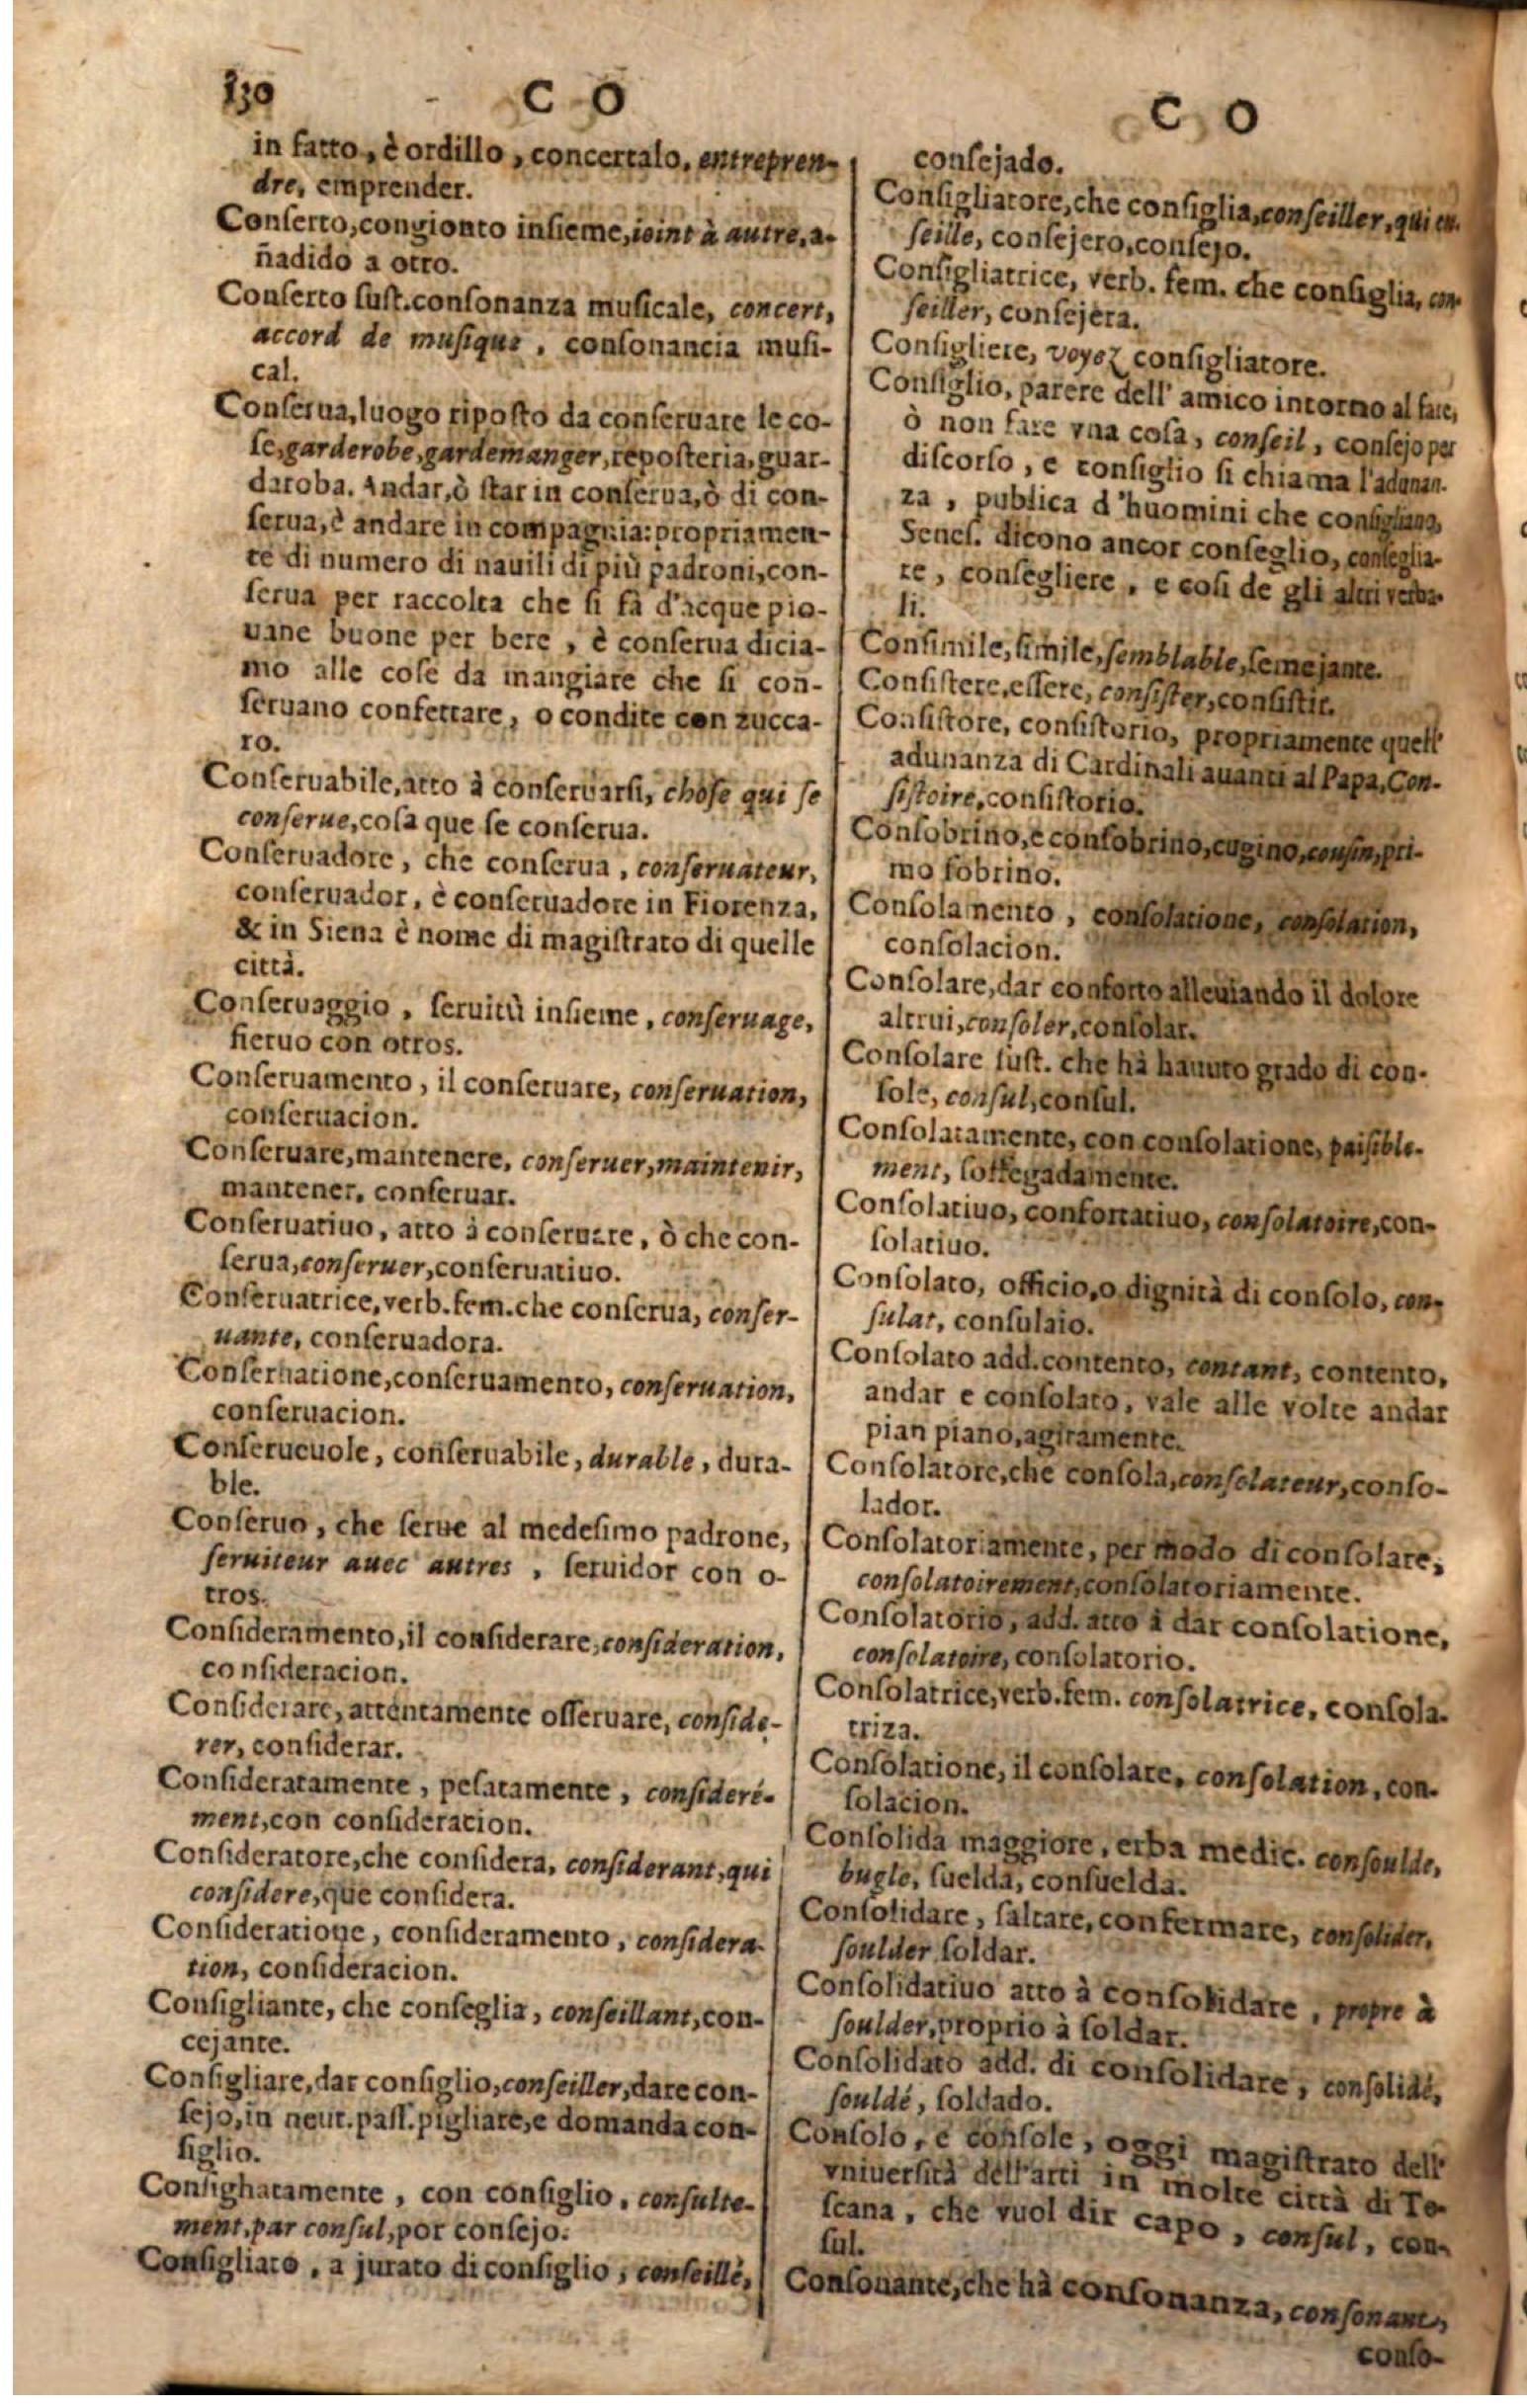 130
C O
in fatto, è ordillo, concertalo, entrepren-
dre, emprender.
Conſerto, congionto inſieme, ioint à autre, a-
ñadido a otro.
Conſerto ſuſt. conſonanza muſicale, concert,
accord de muſique, conſonancia muſi-
cal.
Conſerua, luogo ripoſto da conſeruare le co-
ſe, garderobe, gardemanger, repoſteria, guar-
daroba. Andar, ò ſtar in conſerua, ò di con-
ſerua, è andare in compagnia: propriamen-
te di numero di nauili di più padroni, con-
ſerua per raccolta che ſi fà d'acque pio-
uane buone per bere, è conſerua dicia-
mo alle coſe da mangiare che ſi con-
ſeruano confettare, o condite con zucca-
ro.
Conſeruabile, atto à conſeruarſi, choſe qui ſe
conſerue, coſa que ſe conſerua.
Conſeruadore, che conſerua, conſeruateur,
conſeruador, è conſeruadore in Fiorenza,
& in Siena è nome di magiſtrato di quelle
città.
Conſeruaggio, ſeruitù inſieme, conſeruage,
ſieruo con otros.
Conſeruamento, il conſeruare, conſeruation,
conſeruacion.
Conſeruare, mantenere, conſeruer, maintenir,
mantener, conſeruar.
Conſeruatiuo, atto à conſeruare, ò che con-
ſerua, conſeruer, conſeruatiuo.
Conſeruatrice, verb. fem. che conſerua, conſer-
uante, conſeruadora.
Conſeruatione, conſeruamento, conſeruation,
conſeruacion.
Conſerueuole, conſeruabile, durable, dura-
ble.
Conſeruo, che ſerue al medeſimo padrone,
ſeruiteur auec autres, ſeruidor con o-
tros.
Conſideramento, il conſiderare, conſideration,
conſideracion.
Conſiderare, attentamente oſſeruare, conſide-
rer, conſiderar.
Conſideratamente, peſatamente, conſideré-
ment, con conſideracion.
Conſideratore, che conſidera, conſiderant, qui
conſidere, que conſidera.
Conſideratione, conſideramento, conſidera-
tion, conſideracion.
Conſigliante, che conſeglia, conſeillant, con-
cejante.
Conſigliare, dar conſiglio, conſeiller, dare con-
ſejo, in neut. paſſ. pigliare, e domanda con-
ſiglio.
Conſighatamente, con conſiglio, conſulte-
ment, par conſul, por conſejo.
Conſigliato, a jurato di conſiglio, conſeillè,
C O
conſejado.
Conſigliatore, che conſiglia, conſeiller, qui cu-
ſeille, conſejero, conſejo.
Conſigliatrice, verb. fem. che conſiglia, con-
ſeiller, conſejera.
Conſigliere, voyez conſigliatore.
Conſiglio, parere dell' amico intorno al fare,
ò non fare vna coſa, conſeil, conſejo per
diſcorſo, e conſiglio ſi chiama l'adunan-
za, publica d'huomini che conſigliano,
Seneſ. dicono ancor conſeglio, conſeglia-
re, conſegliere, e coſi de gli altri verba-
li.
Conſimile, ſimile, ſemblable, ſemejante.
Conſiſtere, eſſere, conſiſter, conſiſtir.
Conſiſtore, conſiſtorio, propriamente quell'
adunanza di Cardinali auanti al Papa, Con-
ſiſtoire, conſiſtorio.
Conſobrino, e conſobrino, cugino, couſin, pri-
mo ſobrino.
Conſolamento, conſolatione, conſolation,
conſolacion.
Conſolare, dar conforto alleuiando il dolore
altrui, conſoler, conſolar.
Conſolare ſuſt. che hà hauuto grado di con-
ſole, conſul, conſul.
Conſolatamente, con conſolatione, paiſible-
ment, ſoſſegadamente.
Conſolatiuo, confortatiuo, conſolatoire, con-
ſolatiuo.
Conſolato, officio, o dignità di conſolo, con-
ſulat, conſulaio.
Conſolato add. contento, contant, contento,
andar e conſolato, vale alle volte andar
pian piano, agitamente.
Conſolatore, che conſola, conſolateur, conſo-
lador.
Conſolatoriamente, per modo di conſolare,
conſolatoirement, conſolatoriamente.
Conſolatorio, add. atto à dar conſolatione,
conſolatoire, conſolatorio.
Conſolatrice, verb. fem. conſolatrice, conſola-
triza.
Conſolatione, il conſolare, conſolation, con-
ſolacion.
Conſolida maggiore, erba medic. conſoulde,
bugle, ſuelda, conſuelda.
Conſolidare, ſaltare, confermare, conſolider,
ſoulder ſoldar.
Conſolidatiuo atto à conſolidare, propre à
ſoulder, proprio à ſoldar.
Conſolidato add. di conſolidare, conſolidé,
ſouldé, ſoldado.
Conſolo, e conſole, oggi magiſtrato dell'
vniuerſità dell'arti in molte città di To-
ſcana, che vuol dir capo, conſul, con-
ſul.
Conſonante, che hà conſonanza, conſonant,
conſo-